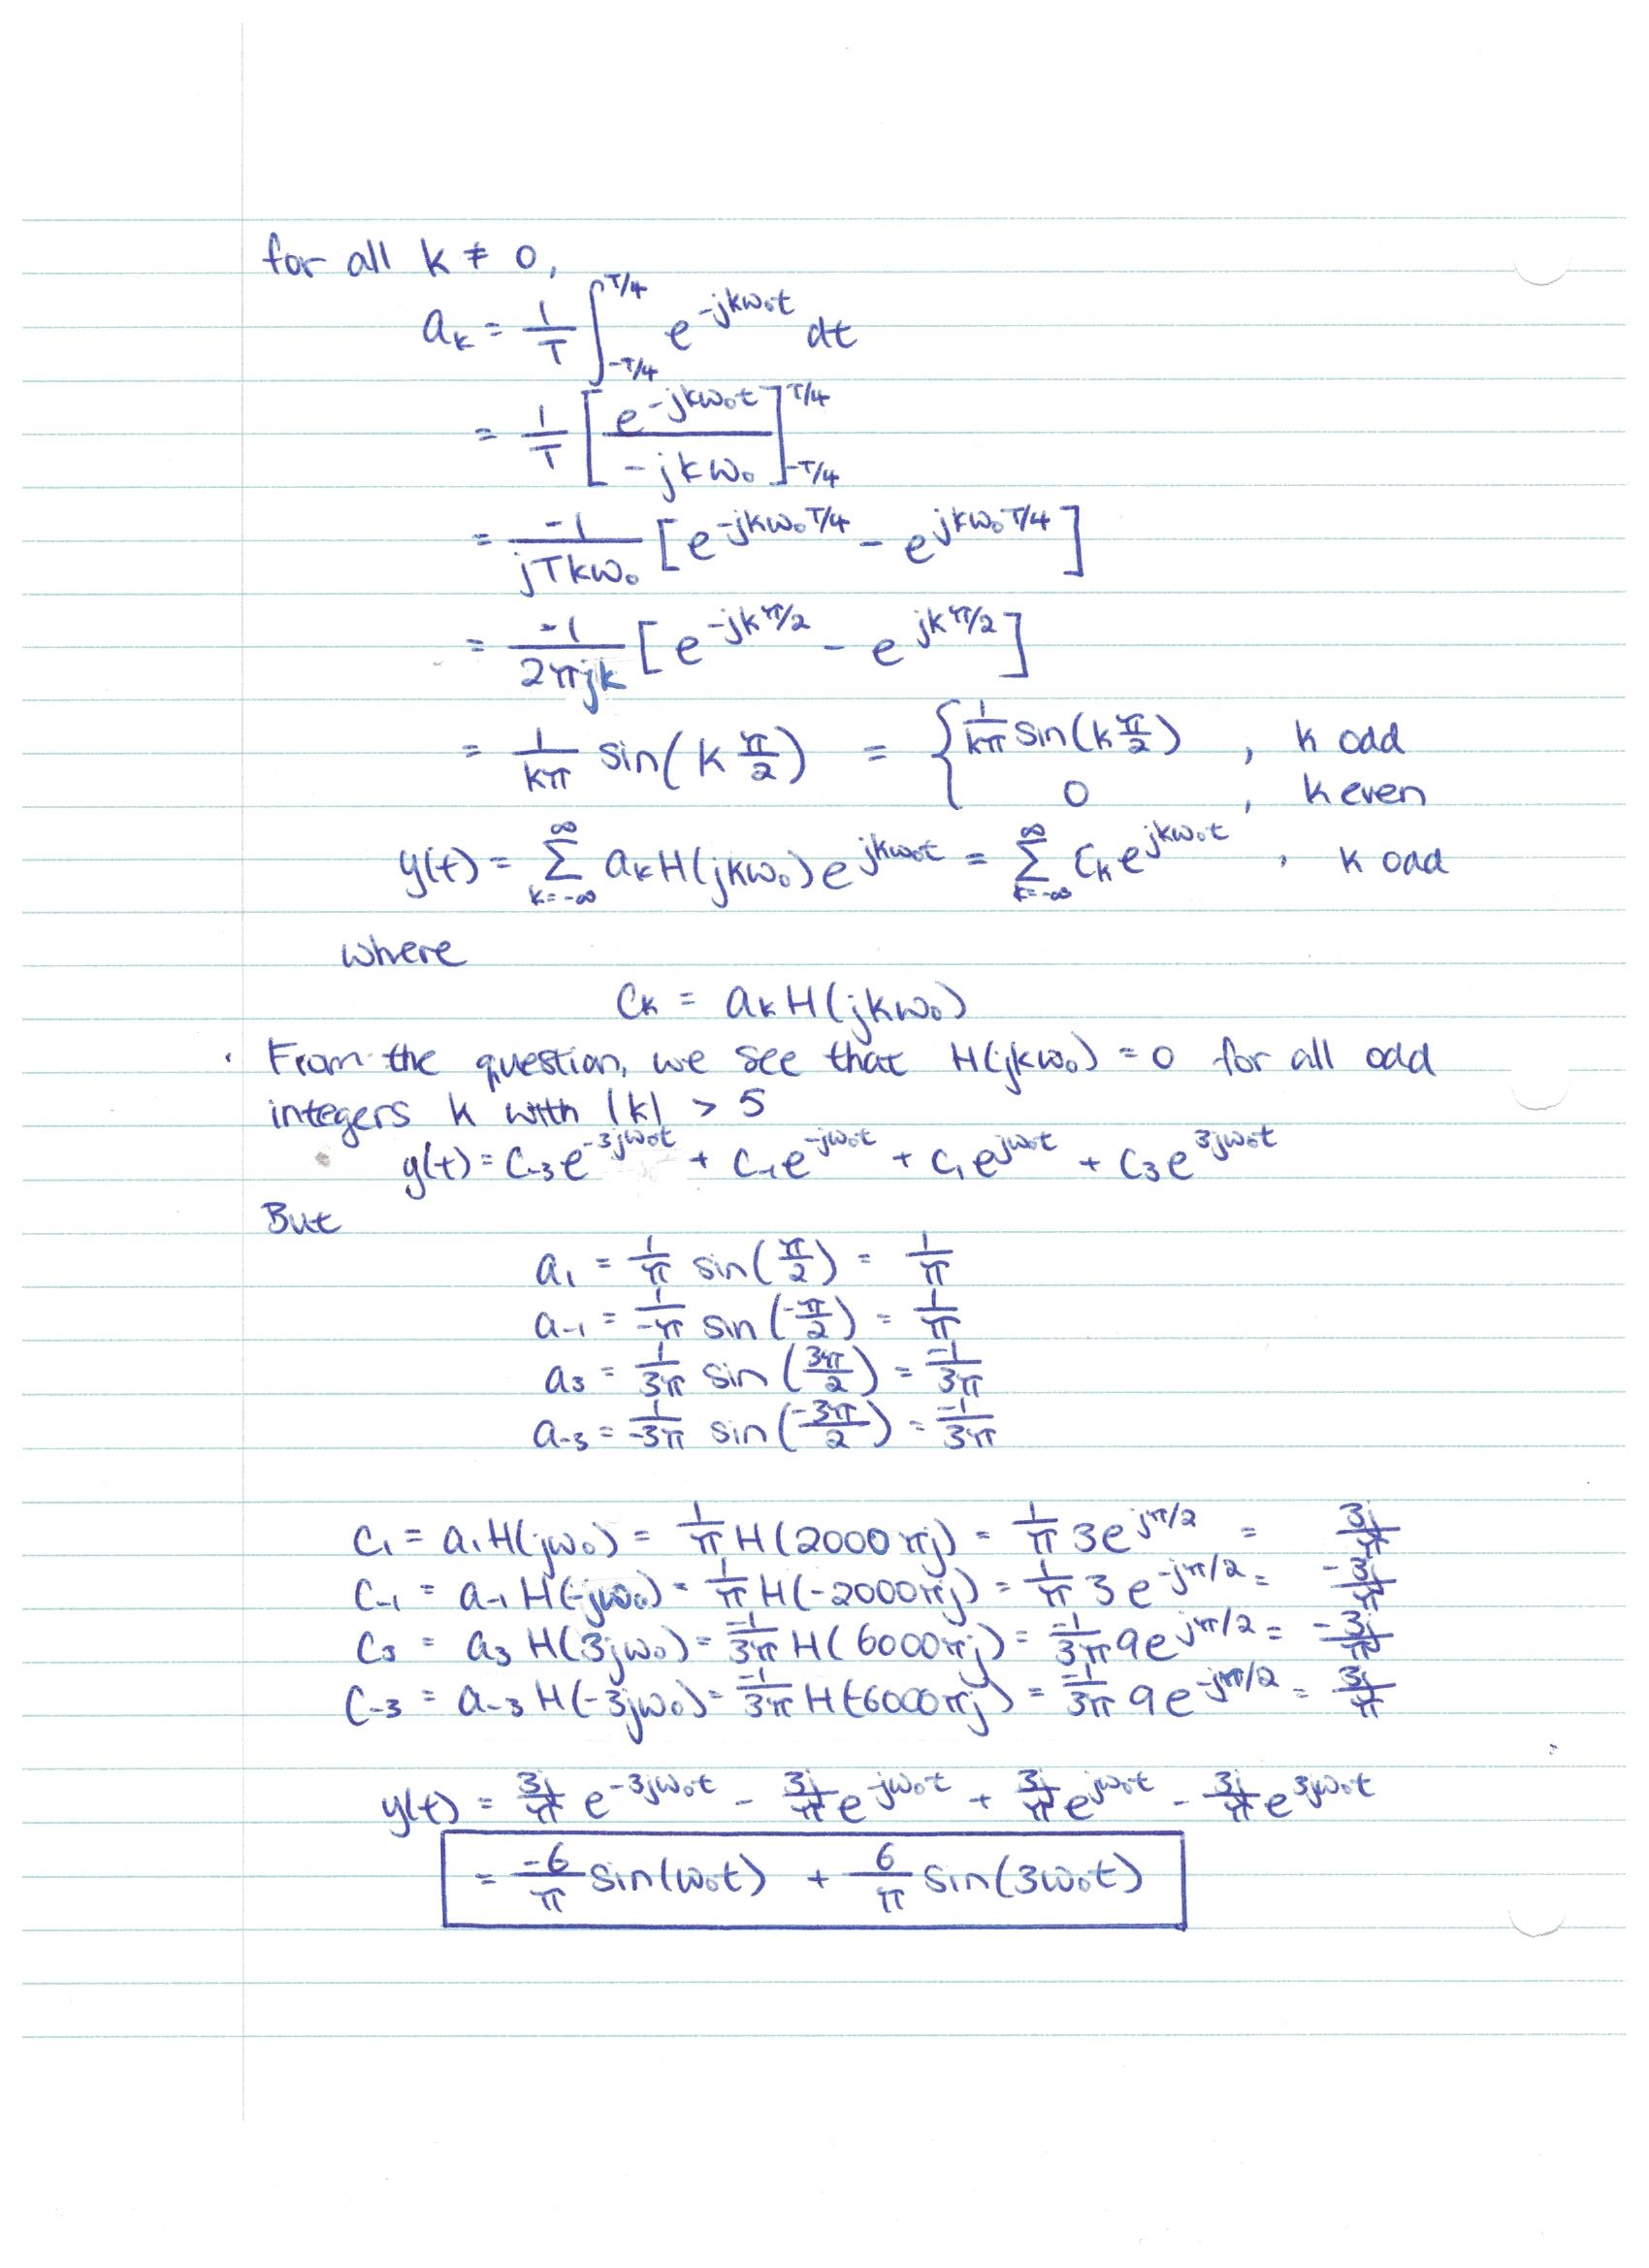 for all k ≠ 0,
aₖ = 1/T ∫_{-T/4}^{T/4} e^{-jkω₀t} dt
= 1/T [ e^{-jkω₀t} / -jkω₀ ]_{-T/4}^{T/4}
= -1/(jTkω₀) [e^{-jkω₀T/4} - e^{jkω₀T/4}]
= -1/(2πjk) [e^{-jkπ/2} - e^{jkπ/2}]
= 1/(kπ) sin(k π/2) = { 1/(kπ) sin(k π/2) , k odd
0 , k even
y(t) = Σ_{k=-∞}^{∞} aₖH(jkω₀)e^{jkω₀t} = Σ_{k=-∞}^{∞} Cₖe^{jkω₀t} , k odd
where
Cₖ = aₖH(jkω₀)
From the question, we see that H(jkω₀) = 0 for all odd
integers k with |k| > 5
y(t) = C₋₃e^{-3jω₀t} + C₋₁e^{-jω₀t} + C₁e^{jω₀t} + C₃e^{3jω₀t}
But
a₁ = 1/π sin(π/2) = 1/π
a₋₁ = 1/-π sin(-π/2) = 1/π
a₃ = 1/3π sin(3π/2) = -1/3π
a₋₃ = 1/-3π sin(-3π/2) = -1/3π
C₁ = a₁H(jω₀) = 1/π H(2000πj) = 1/π 3e^{jπ/2} = 3j/π
C₋₁ = a₋₁H(-jω₀) = 1/π H(-2000πj) = 1/π 3e^{-jπ/2} = -3j/π
C₃ = a₃H(3jω₀) = -1/3π H(6000πj) = -1/3π 9e^{jπ/2} = -3j/π
C₋₃ = a₋₃H(-3jω₀) = -1/3π H(-6000πj) = -1/3π 9e^{-jπ/2} = 3j/π
y(t) = 3j/π e^{-3jω₀t} - 3j/π e^{-jω₀t} + 3j/π e^{jω₀t} - 3j/π e^{3jω₀t}
= -6/π sin(ω₀t) + 6/π sin(3ω₀t)